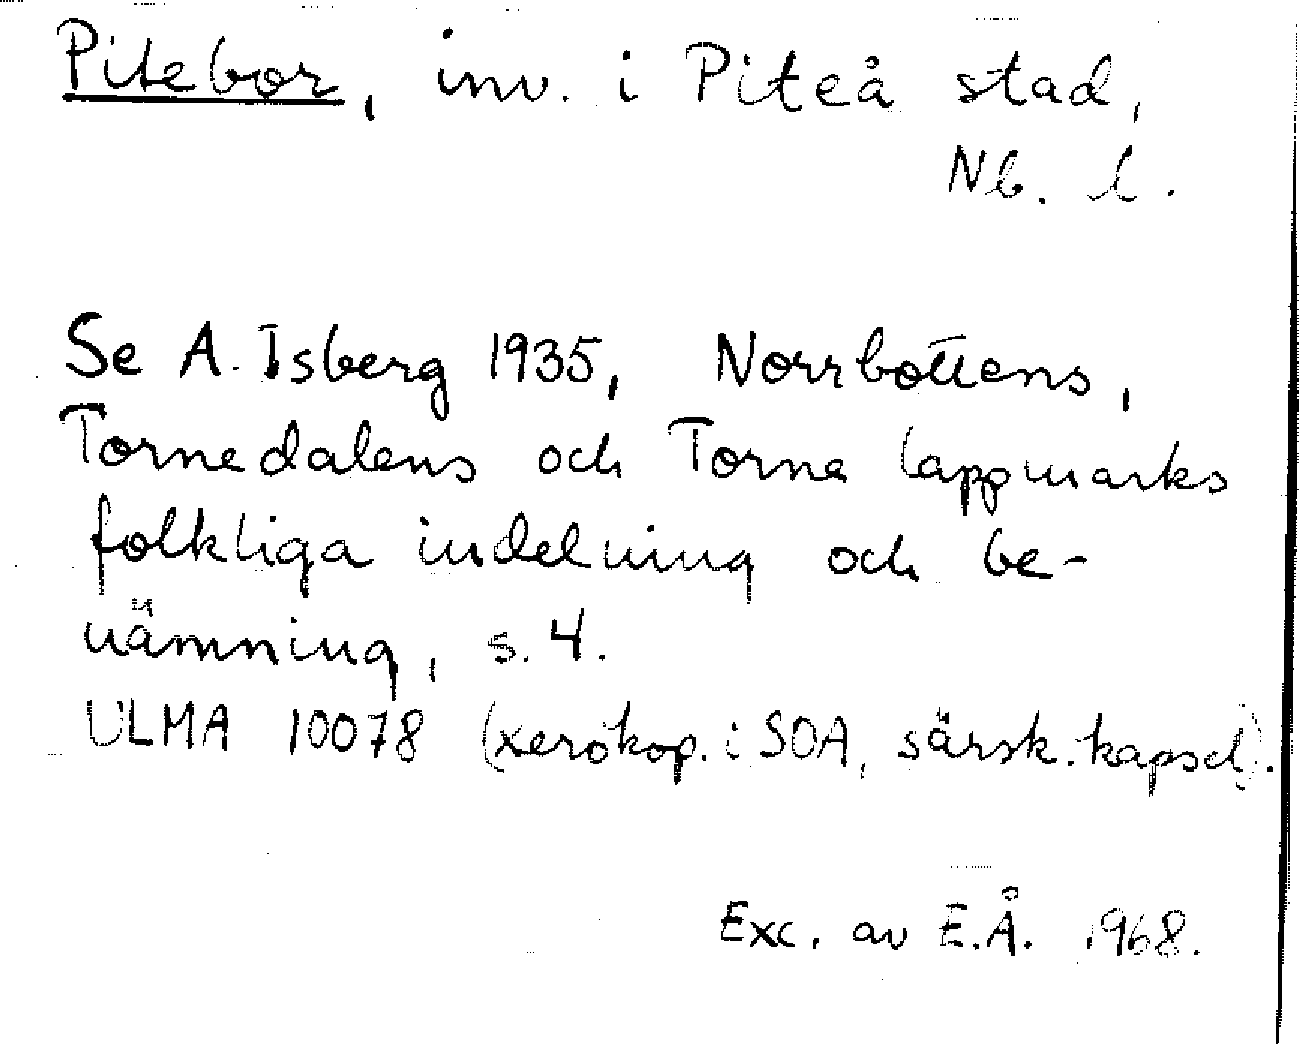 Pitebor, inv. i Piteå stad,
Nb. l.
Se A. Isberg 1935, Norrbottens,
Tornedalens och Torne lappmarks
folkliga indelning och be-
nämning, s. 4.
ULMA 10078 (xerokop. i SOA, särsk. kapsel).
Exc. av E.Å. 1968.